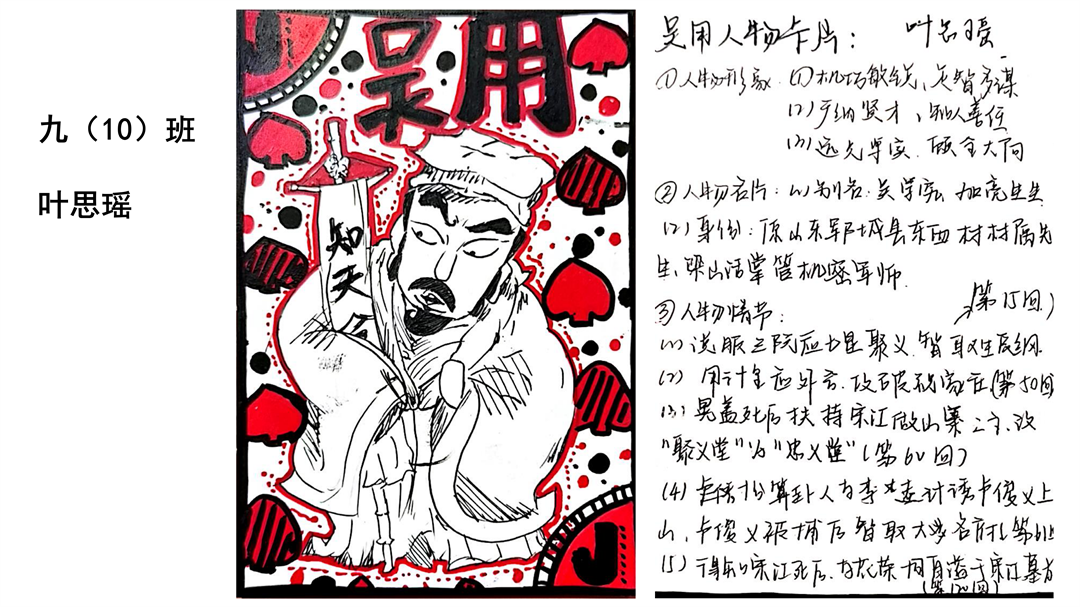 九（10）班
叶思瑶
吴用
知天
J
J
吴用人物卡片： 叶思瑶
①人物形象 (1)机巧敏锐、足智多谋
(2)广纳贤才、知人善任
(3)远见卓实、顾全大局
②人物名片：(1)别名：吴学究 加亮先生
(2)身份：原山东郓城县东西村村属先
生、梁山泊掌管机密军师
③人物情节：
(第15回)
(1)说服三阮应七星聚义 智取生辰纲
(2) 用计里应外合、攻破祝家庄(第50回
(3) 晁盖死后扶持宋江做山寨之主、改
"聚义堂"为"忠义堂"(第60回)
(4) 卢俊 算卦人 李逵 卢俊义上
山、卢俊义被捕后智取大名府(第61
(5) 得知宋江死后、与花荣 自缢于宋江墓前
(第120回)